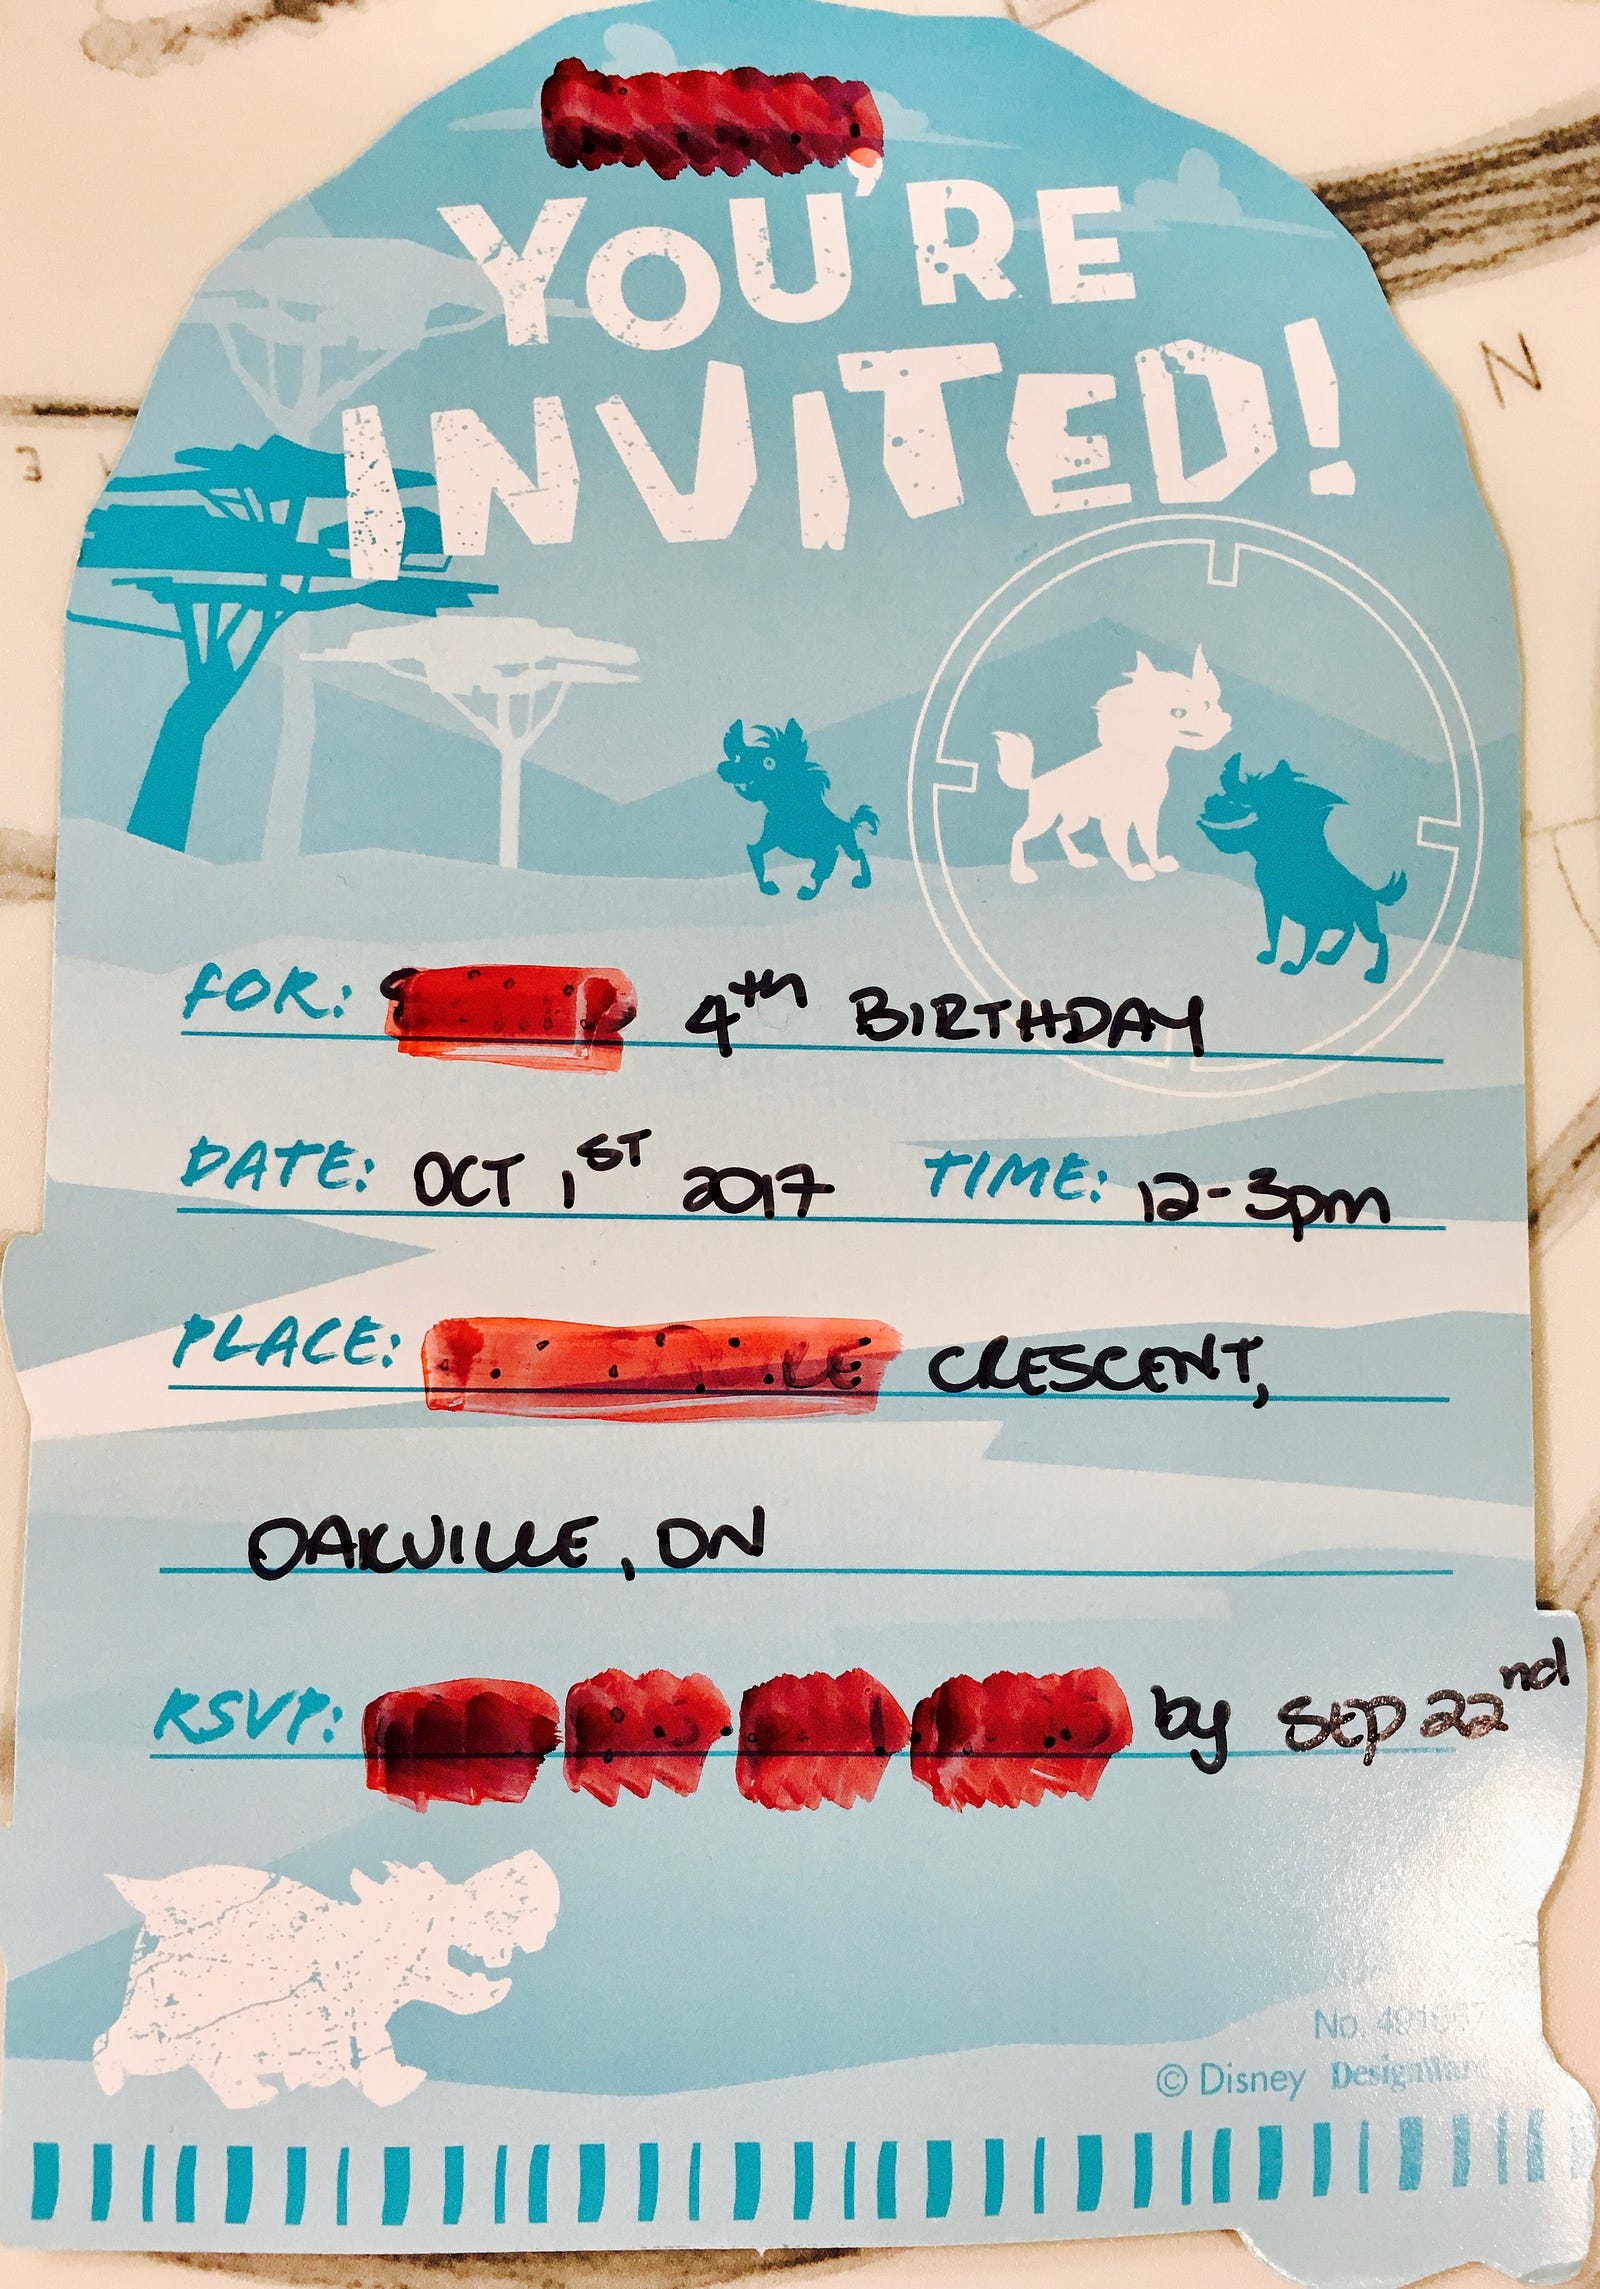 YOU'RE
INVITED!
FOR: 4th BIRTHDAY
DATE: OCT 1ST 2017 TIME: 12-3pm
PLACE: CRESCENT,
OAKVILLE, ON
RSVP: by SEP 22nd
No.
© Disney DesignWare
N
3